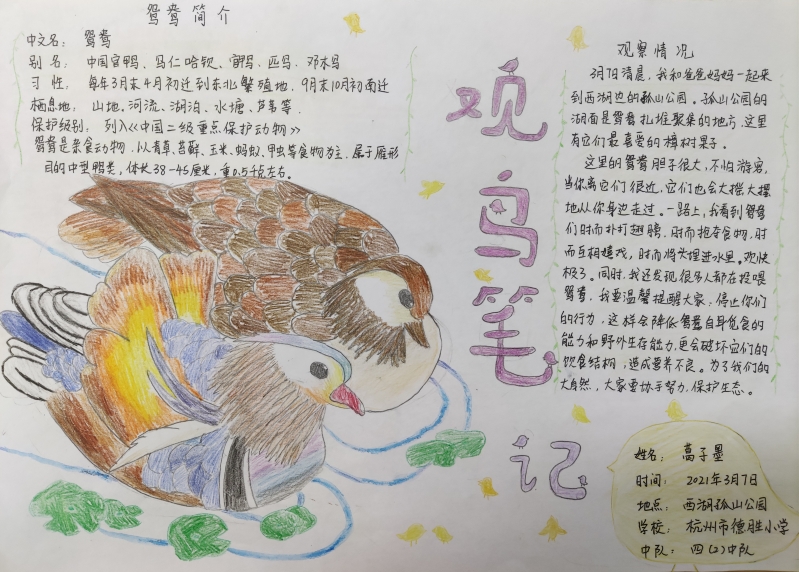 鸳鸯简介
中文名: 鸳鸯
别名: 中国官鸭、马仁哈钦、官鸭、匹鸟、邓木鸟
习性: 每年3月末4月初迁到东北繁殖地、9月末10月初南迁
栖息地: 山地、河流、湖泊、水塘、芦苇等.
保护级别: 列入《中国二级重点保护动物》
鸳鸯是杂食动物.以青草、苔藓、玉米、蚂蚁、甲虫等食物为主.属于雁形
目的中型鸭类,体长38-45厘米,重0.5千克左右。
观鸟笔记
观察情况
3月7日清晨,我和爸爸妈妈一起来
到西湖边的孤山公园。孤山公园的
湖面是鸳鸯扎堆聚集的地方,这里
有它们最喜爱的樟树果子。
这里的鸳鸯胆子很大,不怕游客,
当你离它们很近,它们也会大摇大摆
地从你身边走过。一路上,我看到鸳鸯
们时而扑打翅膀,时而抢夺食物,时
而互相嬉戏,时而将头埋进水里。欢快
极了。同时,我还发现很多人都在投喂
鸳鸯,我要温馨提醒大家,停止你们
的行为,这样会降低鸳鸯自身觅食的
能力和野外生存能力,更会破坏它们的
饮食结构,造成营养不良。为了我们的
大自然,大家要协手努力,保护生态。
姓名: 高子墨
时间: 2021年3月7日
地点: 西湖孤山公园
学校: 杭州市德胜小学
中队: 四(2)中队